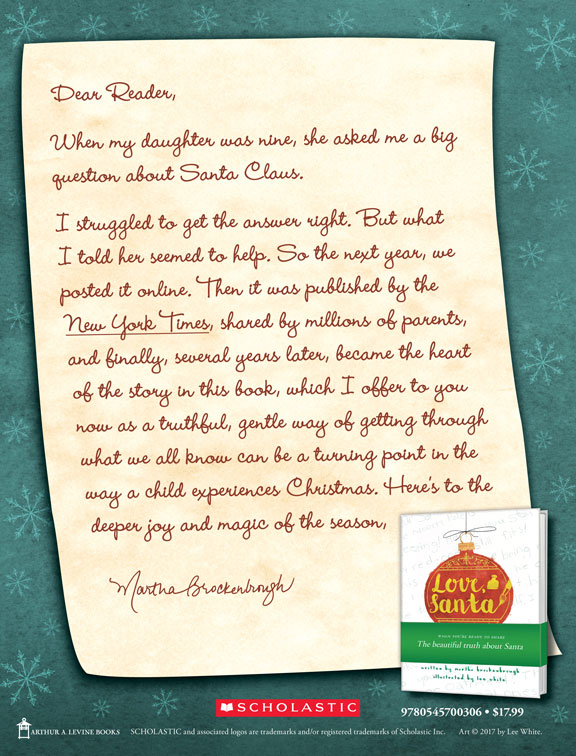 Dear Reader,
When my daughter was nine, she asked me a big
question about Santa Claus.
I struggled to get the answer right. But what
I told her seemed to help. So the next year, we
posted it online. Then it was published by the
New York Times, shared by millions of parents,
and finally, several years later, became the heart
of the story in this book, which I offer to you
now as a truthful, gentle way of getting through
what we all know can be a turning point in the
way a child experiences Christmas. Here's to the
deeper joy and magic of the season,
Martha Brockenbrough
Love,
Santa
WHEN YOU'RE READY TO SHARE
The beautiful truth about Santa
written by martha brockenbrough
illustrated by lee white
SCHOLASTIC
9780545700306 • $17.99
ARTHUR A. LEVINE BOOKS SCHOLASTIC and associated logos are trademarks and/or registered trademarks of Scholastic Inc. Art © 2017 by Lee White.